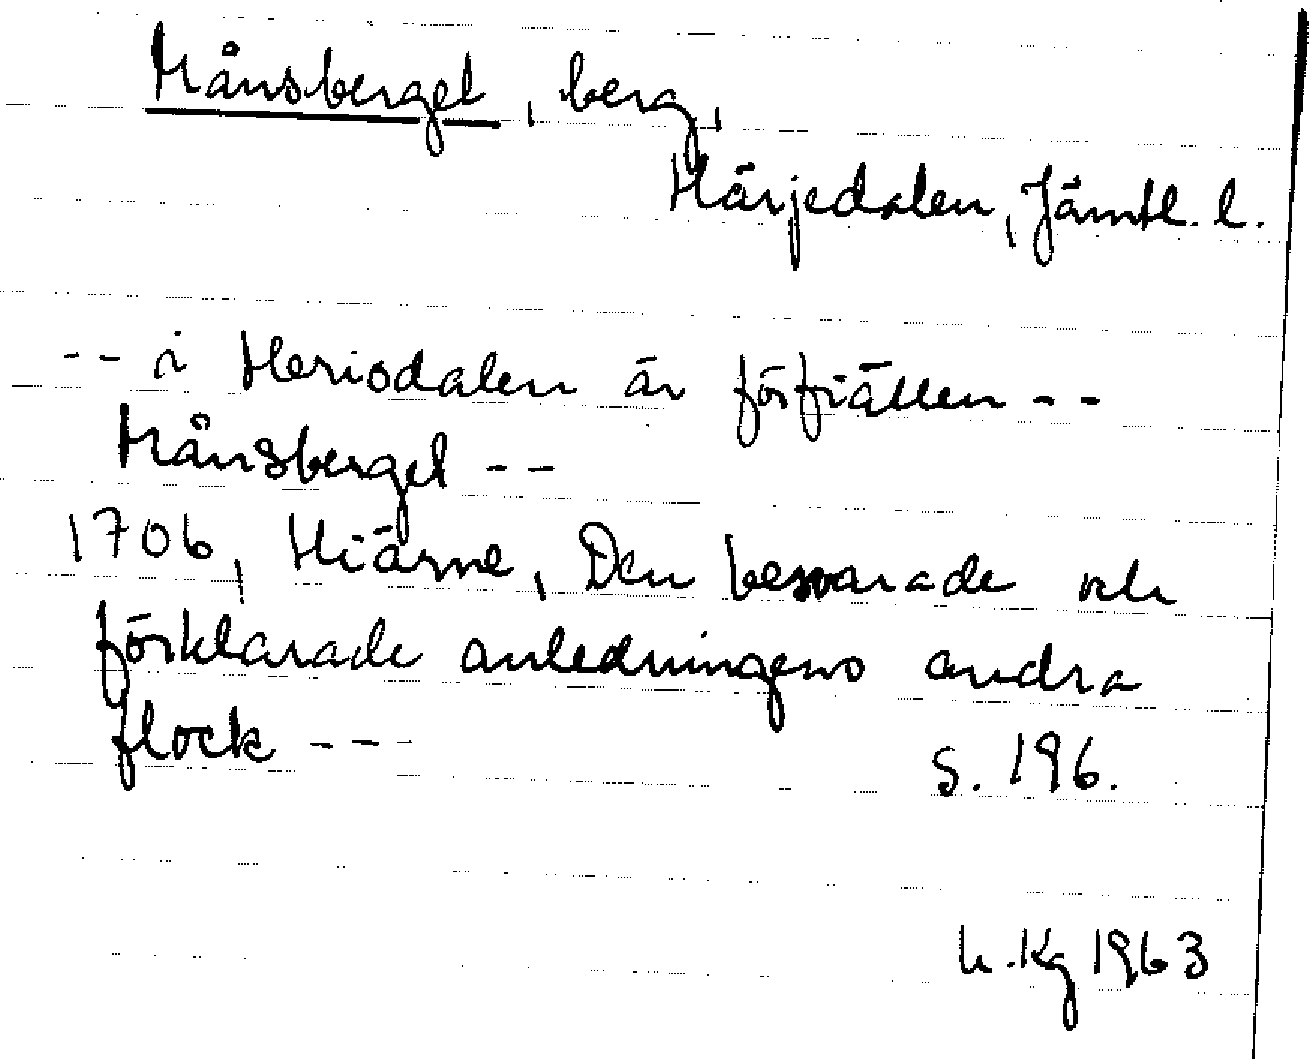 Hånsberget, berg,
Härjedalen, Jämtl. l.
-- i Heriodalen är förfiällen --
Hånsberget --
1706, Hiärne, Den besvarade och
förklarade anledningens andra
flock --- s. 196.
h. Kg 1963